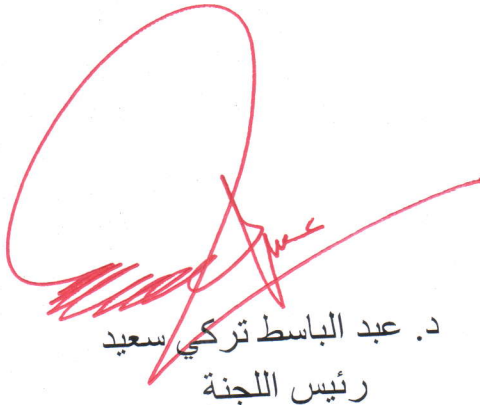 د. عبد الباسط تركي سعيد
رئيس اللجنة